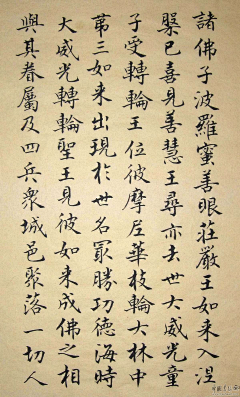 諸佛子波羅蜜善眼莊嚴王如来入涅
槃已喜見善慧王尋亦去世大威光童
子受轉輪王位彼摩尼華枝輪大林中
苐三如来出現於世名冣勝功徳海時
大威光轉輪聖王見彼如来成佛之相
與其眷屬及四兵衆城邑聚落一切人